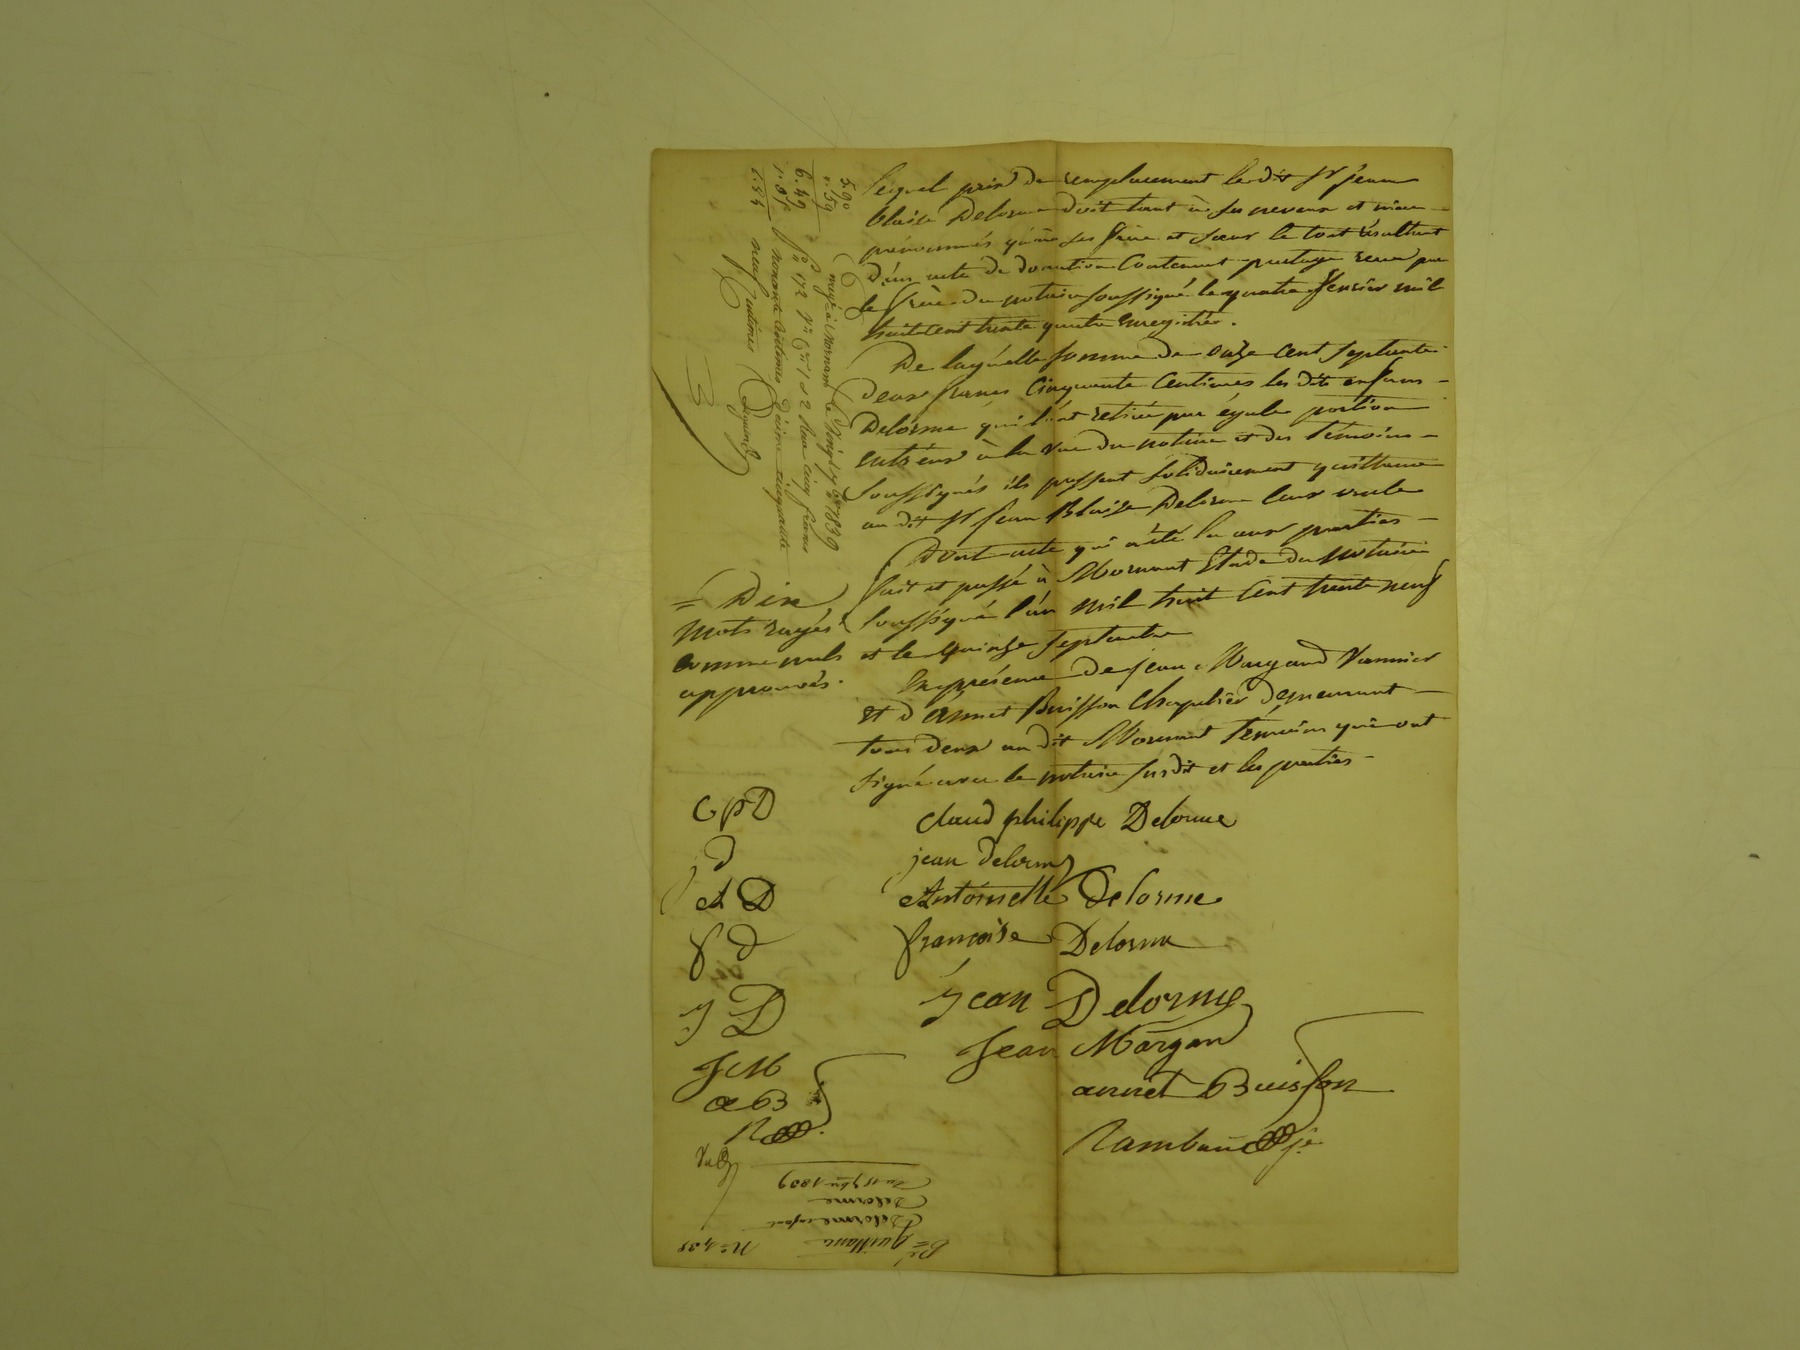 lequel prix de remplacement le dit Sr jean
blaise Delorme doit tant à ses neveux et niece
prénommés qu'à ses frère et sœur le tout résultant
d'un acte de donation Contenant partage recu par
le frère du notaire soussigné le quatre fevrier mil
huit cent trente quatre enregistré.
De laquelle somme de onze cent septante
deux francs Cinquante Centimes les dits enfans
Delorme qui l'ont retirée par égale portion
entr'eux à la vue du notaire et des Témoins
soussignés ils passent solidairement quittance
au dit Sr jean Blaise Delorme leur oncle
Dont acte qui a été lu aux parties
fait et passé à Mornant Etude du notaire
soussigné l'an mil huit Cent trente neuf
et le quinze Septembre
En présence de jean Margand Vannier
et d'annet Buisson Chapelier demeurant
tous deux au dit Mornant Témoins qui ont
signé avec le notaire susdit et les parties
= Dix
mots rayés
comme nuls
approuvés.
CpD
claud philippe Delorme
jd
jean delorme
AD
Antoinette Delorme
fd
françoise Delorme
jD
jean Delorme
JM
Jean Margan
aB
annet Buisson
R
Rambaud je
5.90
.59
6.49
à Mornant le vingt 7bre 1839
fo 172 Vo Cse 1 et 2 Reçu cinq francs
nonante Centimes décime cinquante
neuf Centimes
No 438
Quittance
Delorme enfans
Delorme
Du 15 7bre 1839